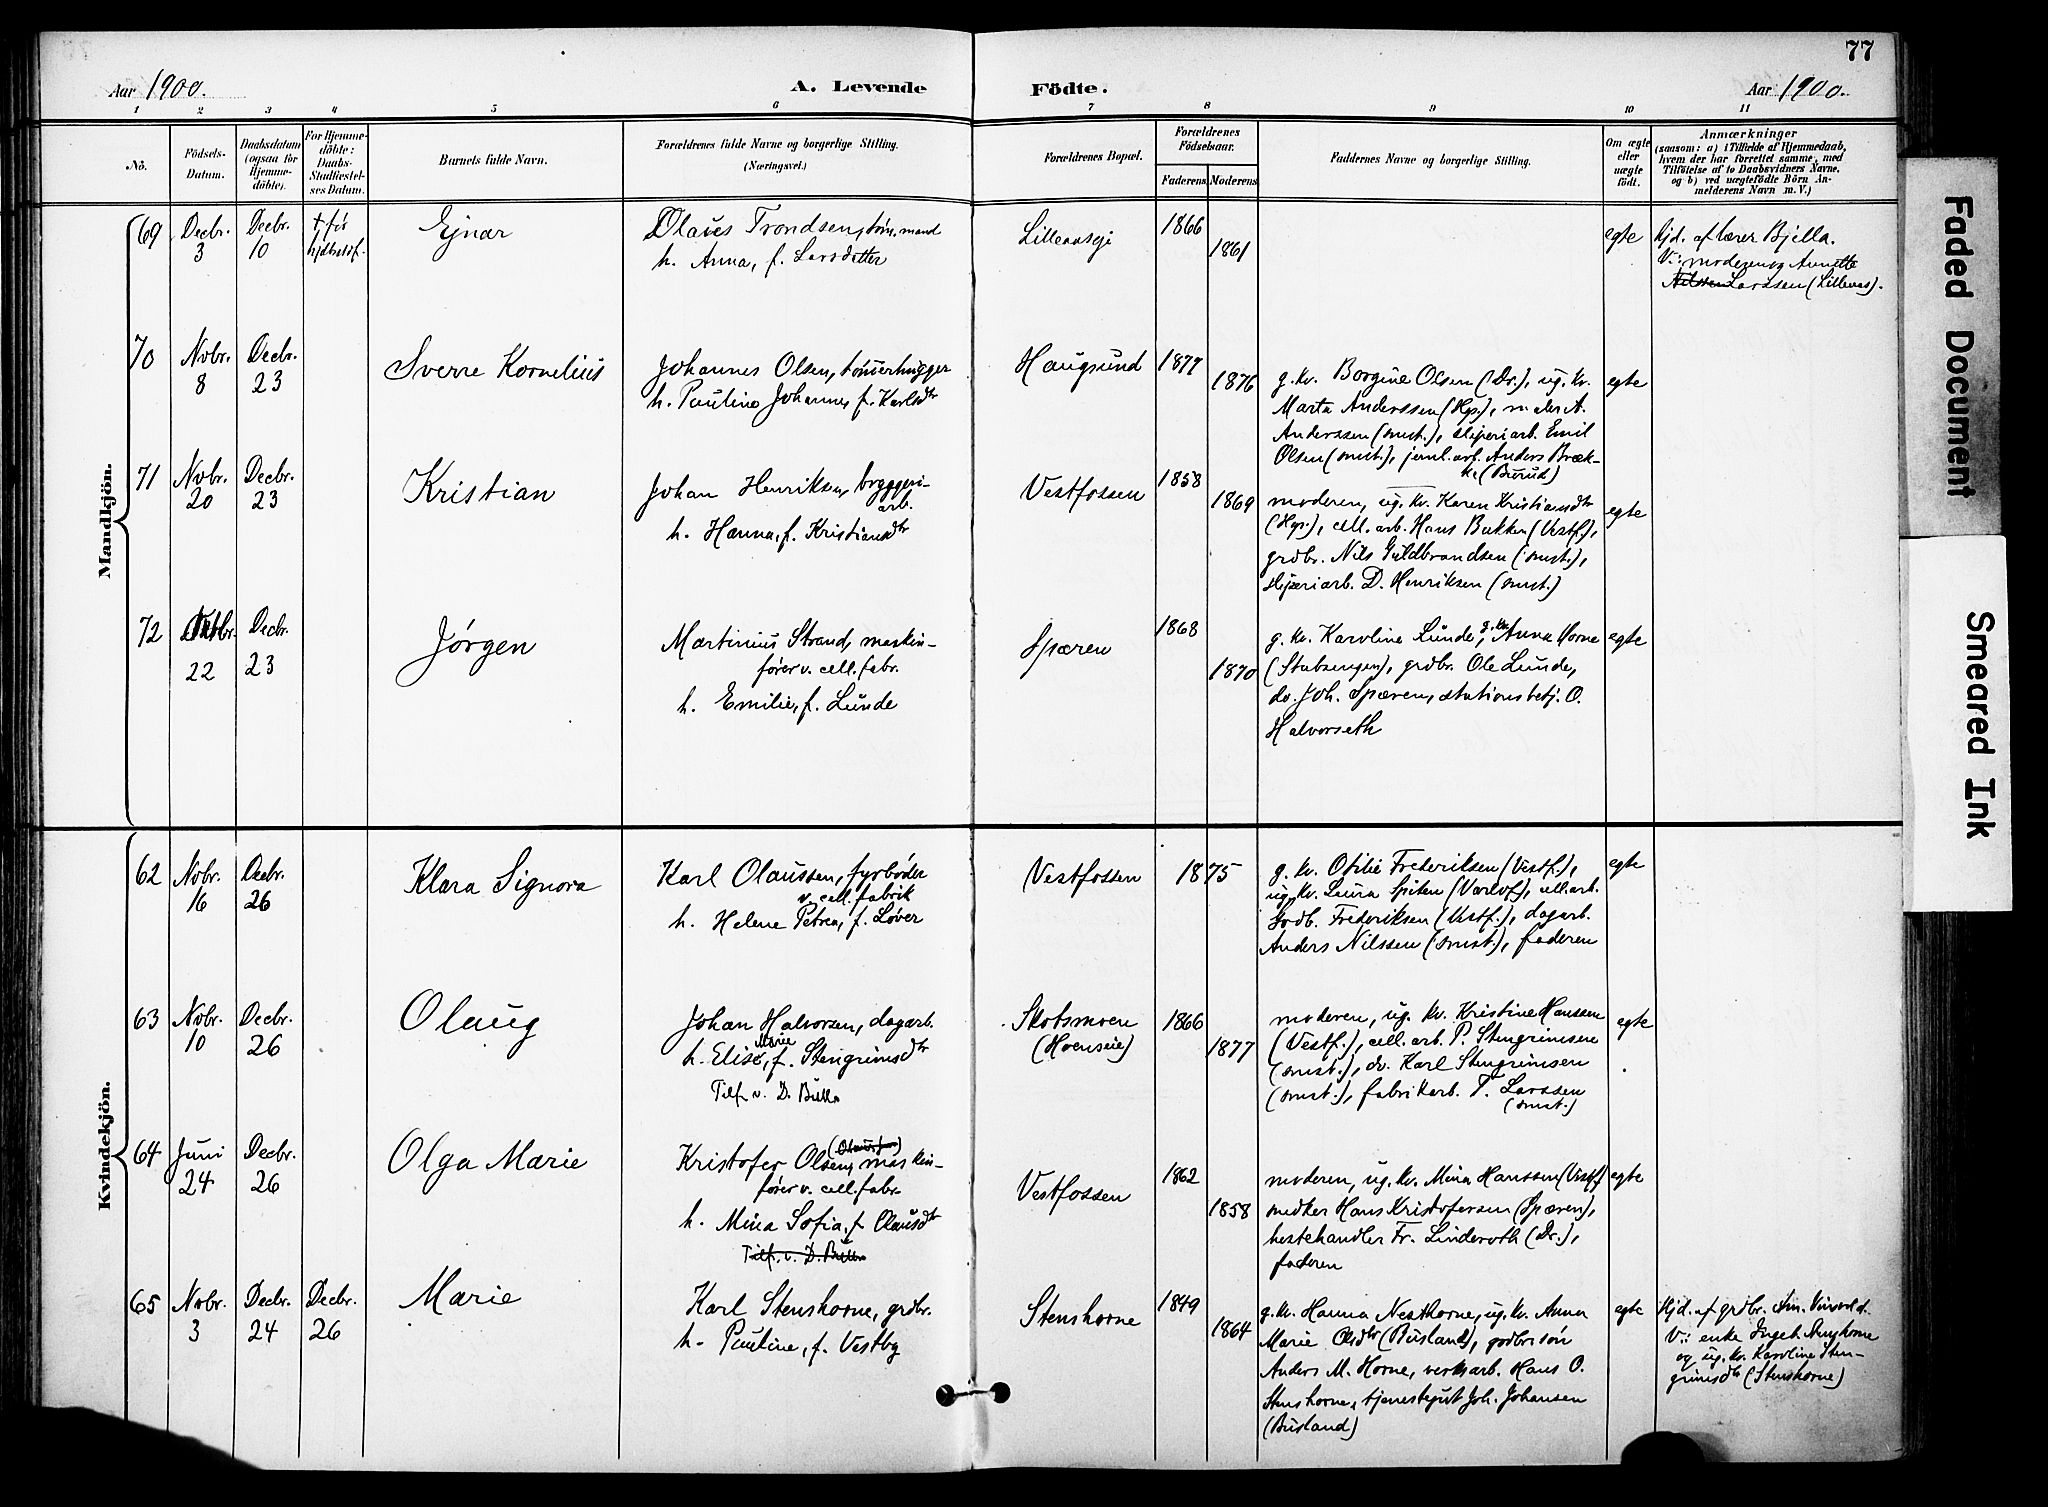 77
Aar 1900.
A. Levende Födte.
Aar 1900.
1 2 3 4 5 6 7 8 9 10 11
No.
Födsels-
Datum.
Daabsdatum
(ogsaa for
Hjemme-
döbte).
For Hjemme-
döbte:
Daabs-
Stadfæstel-
ses Datum.
Barnets fulde Navn.
Forældrenes fulde Navne og borgerlige Stilling.
(Næringsvei.)
Forældrenes Bopæl.
Forældrenes
Födselsaar.
Faderens. Moderens.
Faddernes Navne og borgerlige Stilling.
Om ægte
eller
uægte
födt.
Anmærkninger
(saasom: a) i Tilfælde af Hjemmedaab,
hvem der har forrettet samme, med
Tilföielse af to Daabsvidners Navne,
og b) ved uægtefödte Börn An-
melderens Navn m. V.)
Mandkjön.
69
Decbr.
3
Decbr.
10
† før
Ejnar
Olaves Trondsen, tøm.mand
h. Anna, f. Larsdatter
Lilleaaseje
1866
1861
egte
hjd. af lærer Bjella.
V: moderen og Annette
Nilssen Larssen (Lilleaas).
70
Nvbr.
8
Decbr.
23
Sverre Kornelius
Johannes Olsen, tømerhugger
h. Pauline Johanne, f. Karlsdtr
Haugsund
1877
1876
g. kv. Borgine Olsen (Dr.), ug. kv.
Marta Anderssen (Hgs.), maler A.
Anderssen (smst.), sliperiarb. Emil
Olsen (smst.), jernb. arb. Anders Bræk-
ke (Burud)
egte
71
Nvbr.
20
Decbr.
23
Kristian
Johan Henriksen, bryggeri-
arb.
h. Hanna, f. Kristiansdtr
Vestfossen
1858
1869
moderen, ug. kv. Karen Kristiansdtr
(Hgs.), cell. arb. Hans Bakken (Vestf.),
grdbr. Nils Guldbrandsen (smst.),
sliperiarb. D. Henriksen (smst.)
egte
72
22
Decbr.
23
Jørgen
Martinius Strand, maskin-
fører v. cell. fabr.
h. Emilie, f. Lunde
Spæren
1868
1870
g. kv. Karoline Lunde, g. kv. Anna Horne
(Stubsengen), grdbr. Ole Lunde,
do. Joh. Spæren, stationsbetj. O.
Halvorseth
egte
Kvindekjön.
62
Nvbr.
16
Decbr.
26
Klara Signora
Karl Olaussen, fyrbøder
v. cell. fabrik
h. Helene Petrea, f. Løver
Vestfossen
1875
g. kv. Otilie Frederiksen (Vestf.),
ug. kv. Laura Spiten (Varlof), cell. arb.
Gudb. Frederiksen (Vestf.), dagarb.
Anders Nilssen (smst.), faderen
egte
63
Nvbr.
10
Decbr.
26
Olaug
Johan Halvorsen, dagarb.
h. Elise Marie, f. Stengrimsdtr
Tilf. v. D. Bull
Skotsmoen
(Hoenseie)
1866
1877
moderen, ug. kv. Kristine Hanssen
(Vestf.), cell. arb. P. Stengrimsen
(smst.), do. Karl Stengrimsen
(smst.), fabrikarb. T. Larssen
(smst.)
egte
64
Juni
24
Decbr.
26
Olga Marie
Kristofer Olsen, maskin-
fører v. cell. fabr.
h. Mina Sofia, f. Olausdtr
Tilf. v. D. Bull
Vestfossen
1862
1858
moderen, ug. kv. Mina Hanssen (Vestf.)
snedker Hans Kristofersen (Spæren),
hestehandler Fr. Linderoth (Dr.),
faderen
egte
65
Nvbr.
3
Decbr.
24
Decbr.
26
Marie
Karl Stenshorne, grdbr.
h. Pauline, f. Vestby
Stenshorne
1849
1864
g. kv. Hanna Nesthorne, ug. kv. Anna
Marie Olsdtr (Busland), grdbr.søn
Anders M. Horne, verksarb. Hans O.
Stenshorne, tjenestegut Joh. Johansen
(Busland)
egte
Hjd. af grdbr.
V: enke Ingeb.
og ug. kv. Karoline Sten-
grimsdtr (Stenshorne)
Faded Document
Smeared Ink